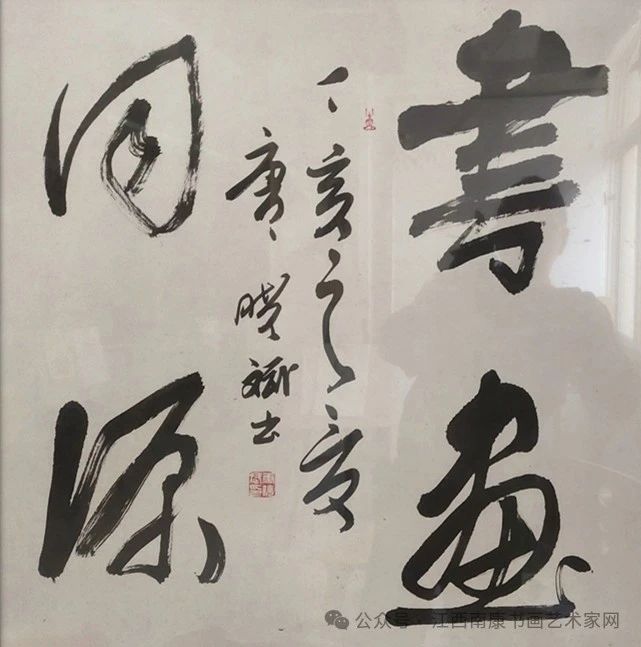 書畫
丁亥之夏
唐曉斌书
同源
公众号 · 江西南康书画艺术家网